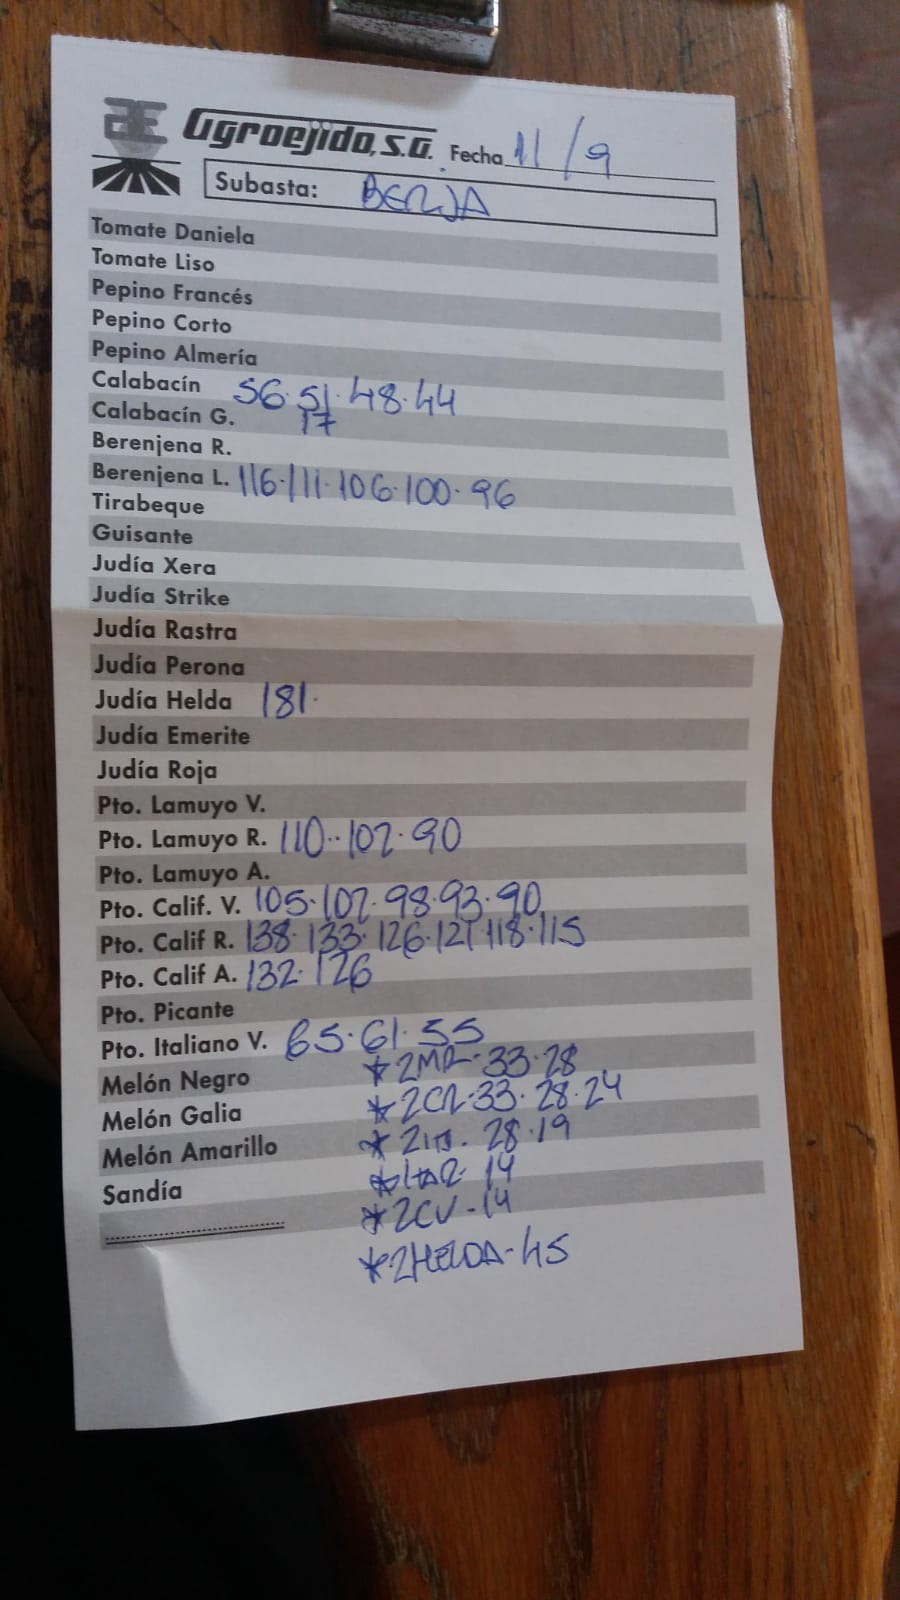 Agroejido, S.A. Fecha 11/9
Subasta: BERJA
Tomate Daniela
Tomate Liso
Pepino Francés
Pepino Corto
Pepino Almería
Calabacín 56·51·48·44
Calabacín G. 17
Berenjena R.
Berenjena L. 116·111·106·100·96
Tirabeque
Guisante
Judía Xera
Judía Strike
Judía Rastra
Judía Perona
Judía Helda 181·
Judía Emerite
Judía Roja
Pto. Lamuyo V.
Pto. Lamuyo R. 110··102·90
Pto. Lamuyo A.
Pto. Calif. V. 105·102·98·93·90
Pto. Calif R. 138·133·126·121·118·115
Pto. Calif A. 132·126
Pto. Picante
Pto. Italiano V. 65·61·55
Melón Negro *2MR·33·28
Melón Galia *2CR·33·28·24
Melón Amarillo *2 28·19
Sandía 14
*2CV-14
*2HELDA-45